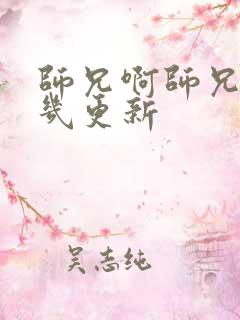 師兄啊師兄
幾更新
吴志纯